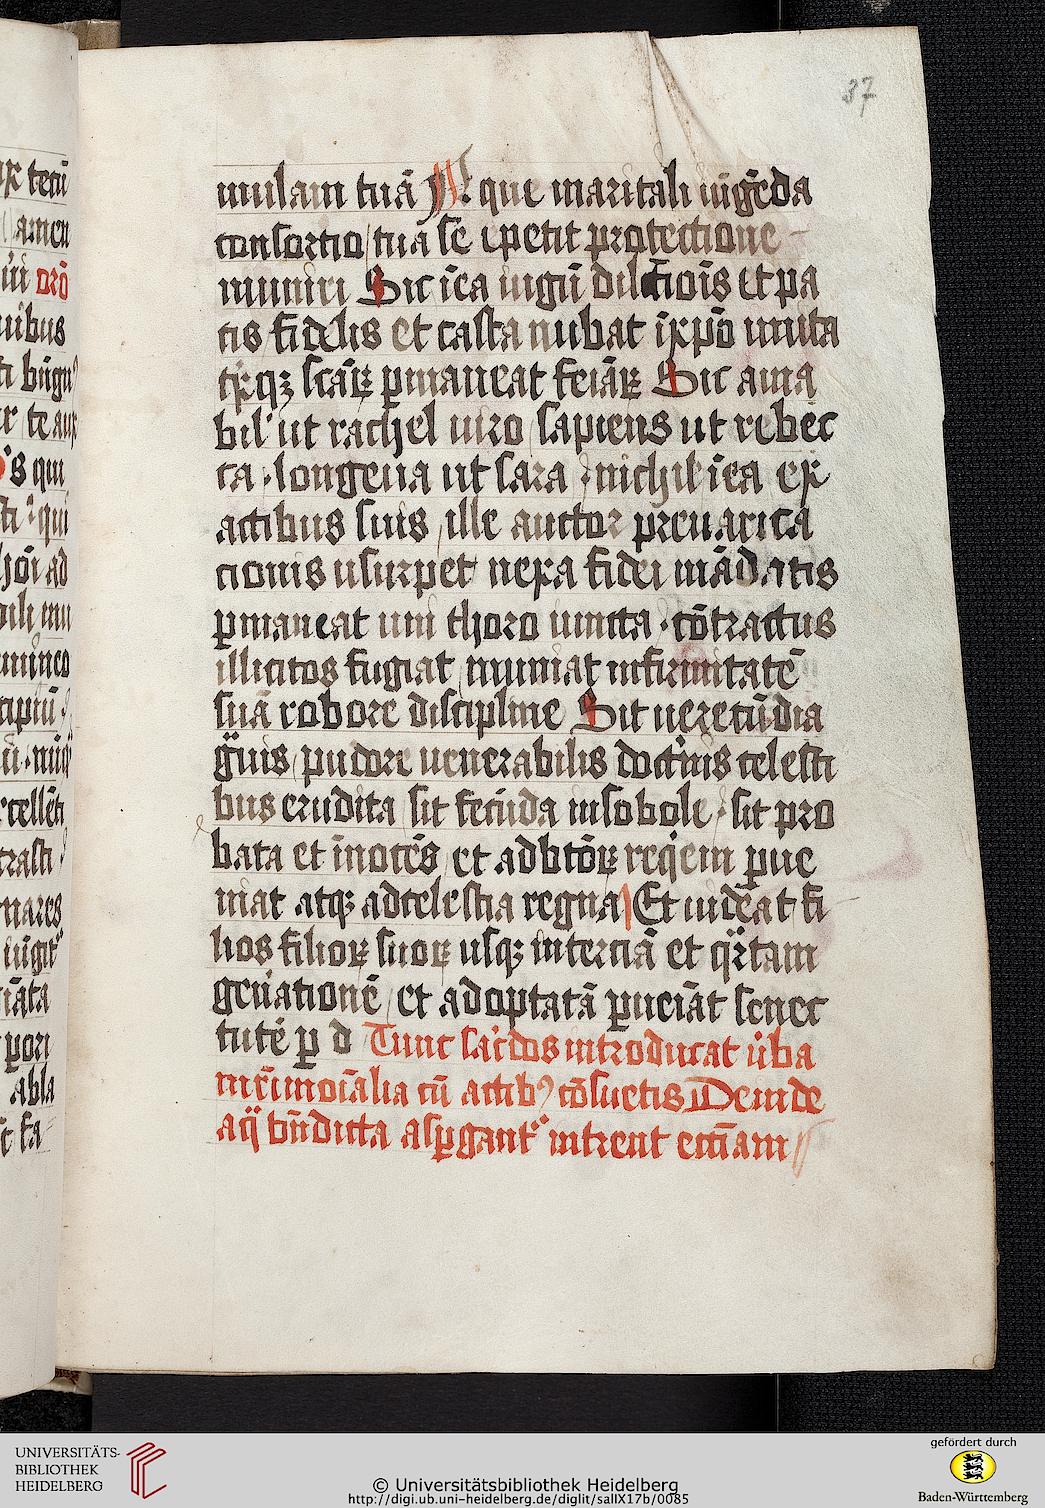 37
mulam tuā N. que maritali iūgēda
consortio / tua se expetit protectione
muniri Sit ī ea iugū dilc̄tiois et pa
cis fidelis et casta nubat ī xp̄o imita
trixq; scāꝝ ꝑmaneat feīāꝝ Sit ama
bil' ut rachel uiro / sapiens ut rebec
ca . longeua ut sara . nichil ī ea ex
actibus suis / ille auctor p̄uarica
cionis usurpet nexa fidei mādatis
ꝑmaneat uni thoro iuncta . cōtractus
illicitos fugiat / muniat infirmitatē
suā robore discipline Sit uerecūdia
g̈uis / pudore uenerabilis doct'nis celesti
bus erudita / sit fecūda in sobole . sit pro
bata et īnocēs / et ad btōꝝ req'em ꝑue
niat atq; ad celestia regna Et uideat fi
lios filioꝝ suoꝝ usq; in terciā et q̈rtam
gen'ationē / et ad optatā ꝑueiāt senec
tutē ꝑ d Tunc sac'dos introducat u'ba
mr̄imoīalia cū actibꝰ cōsuetis Deinde
aq̈ bn̄dicta asꝑgant' intrent ecc̄iam
UNIVERSITÄTS-
BIBLIOTHEK
HEIDELBERG
© Universitätsbibliothek Heidelberg
http://digi.ub.uni-heidelberg.de/diglit/salIX17b/0085
gefördert durch
Baden-Württemberg